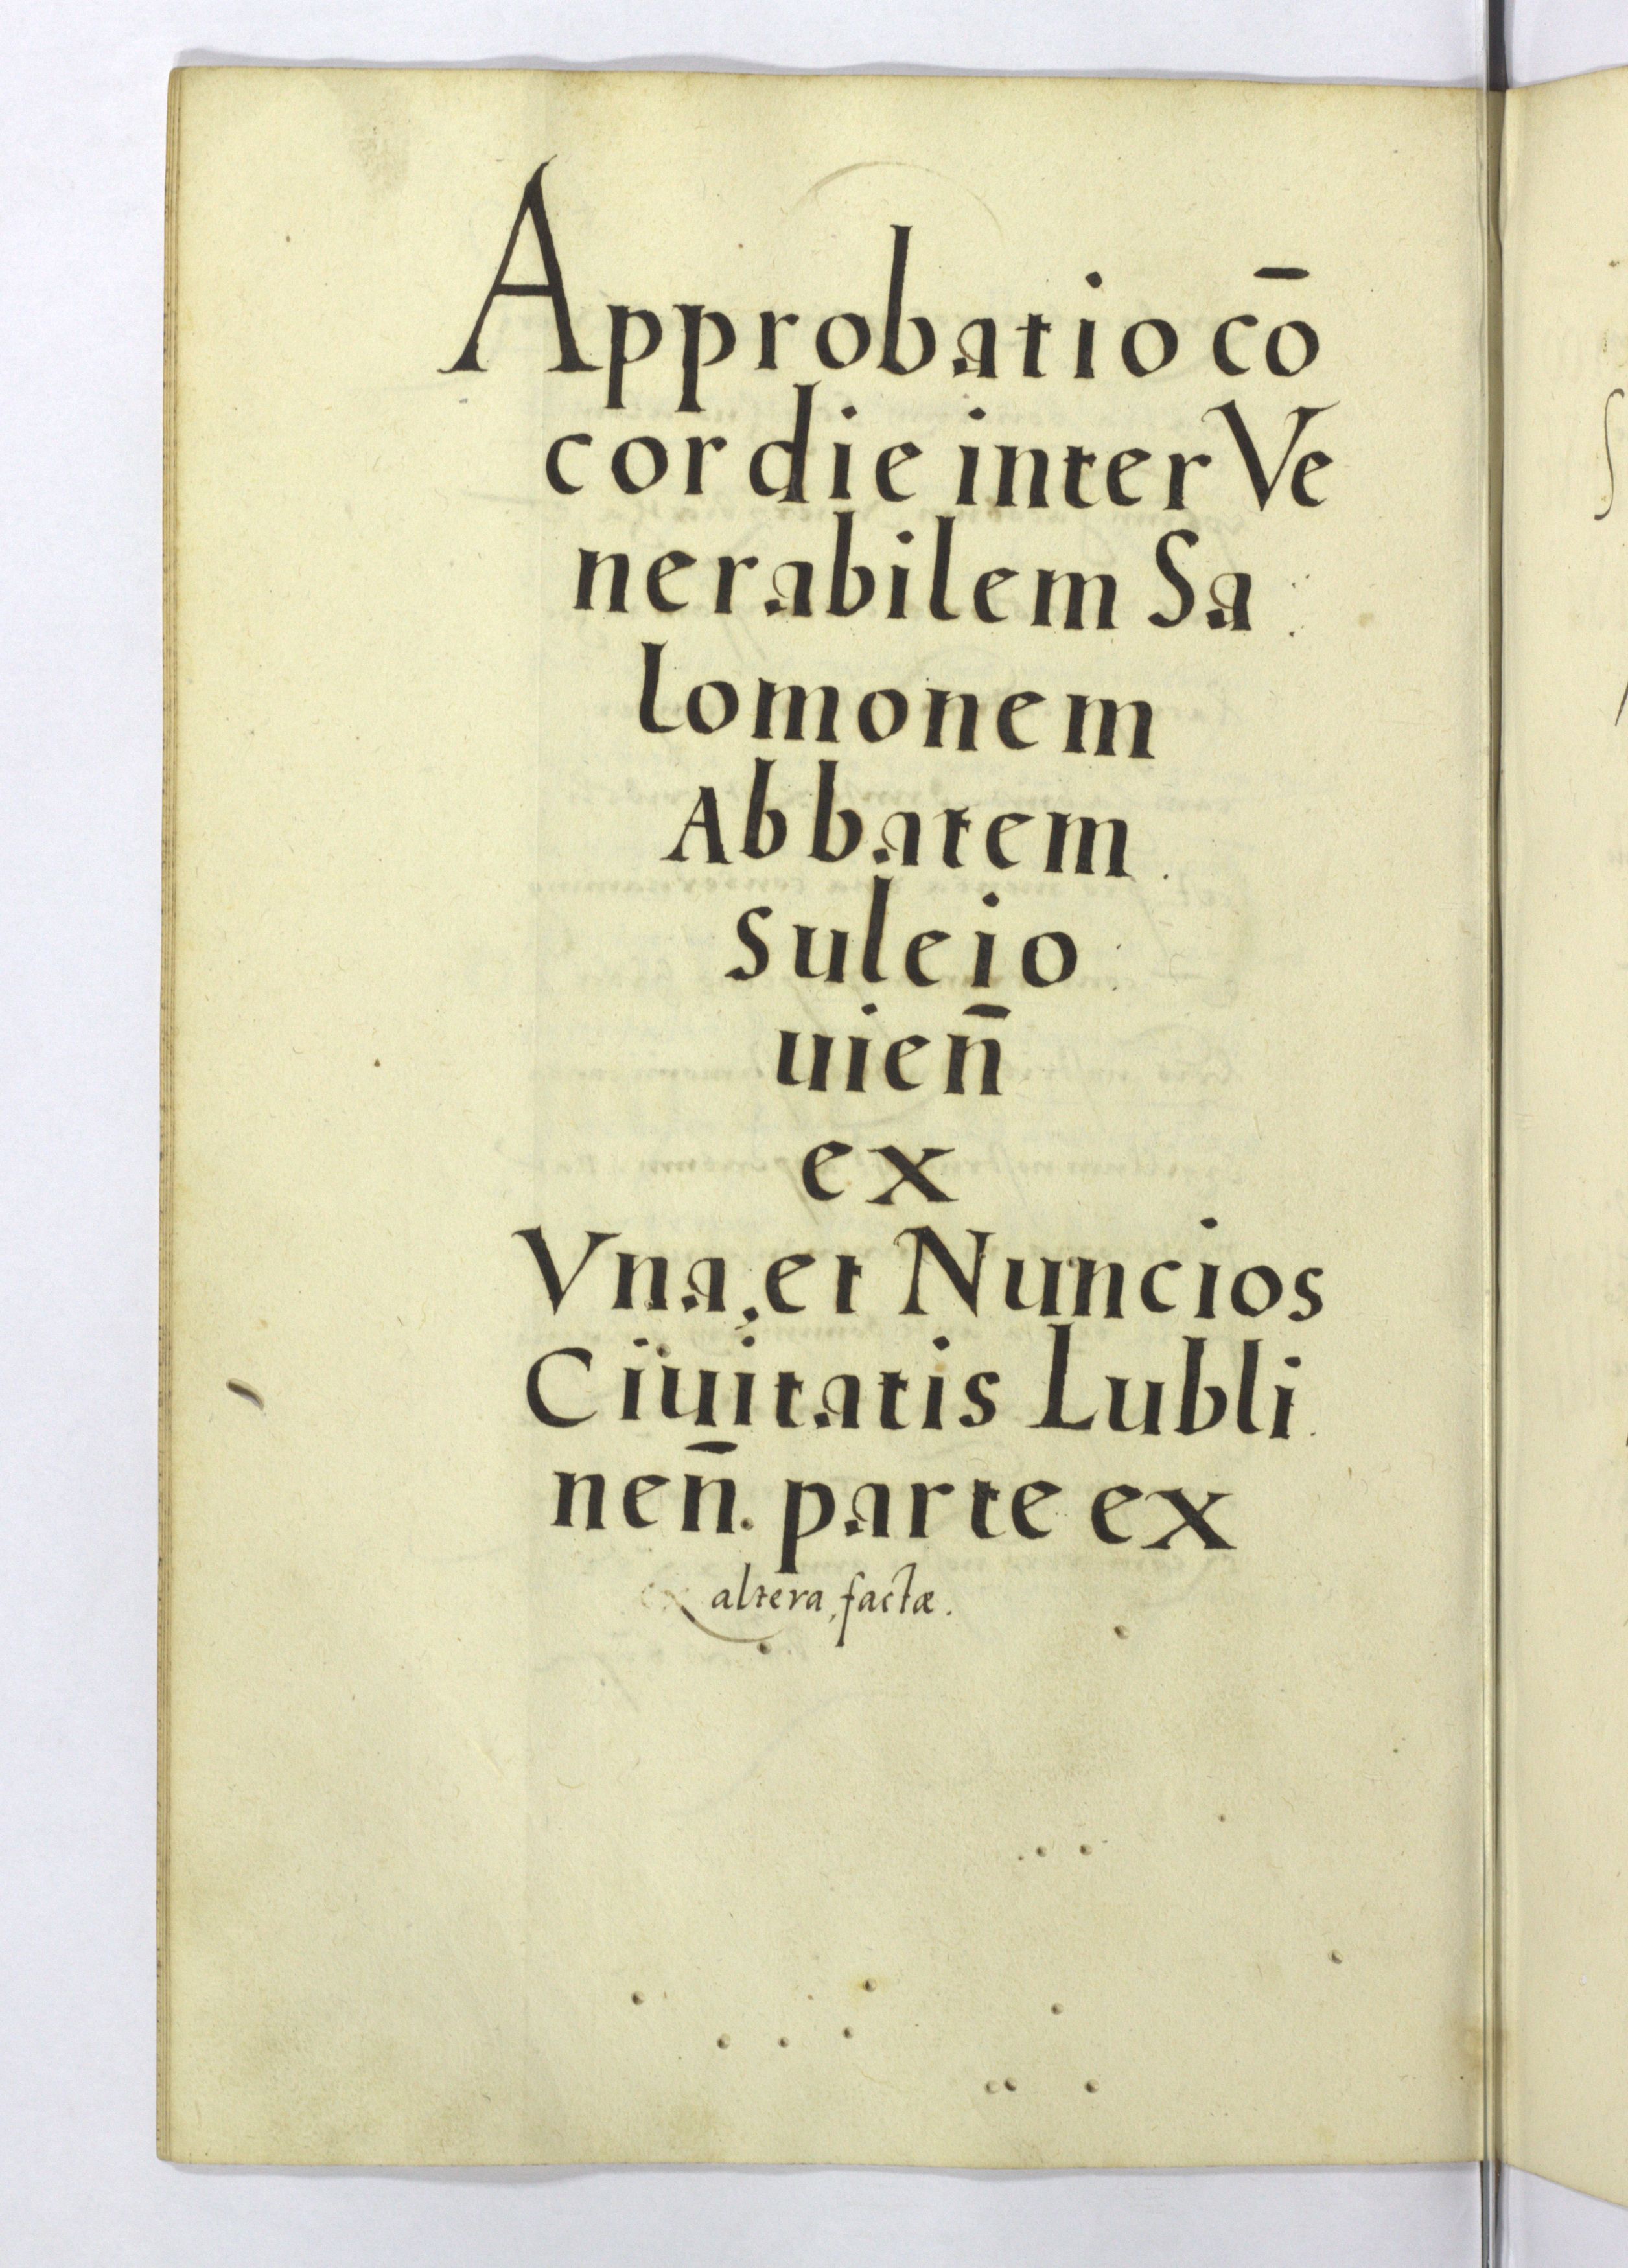 Approbatio cō
cordie inter Ve
nerabilem Sa
lomonem
Abbatem
Suleio
uien̄
ex
Vna, et Nuncios
Ciuitatis Lubli
nen̄. parte ex
altera, factæ.